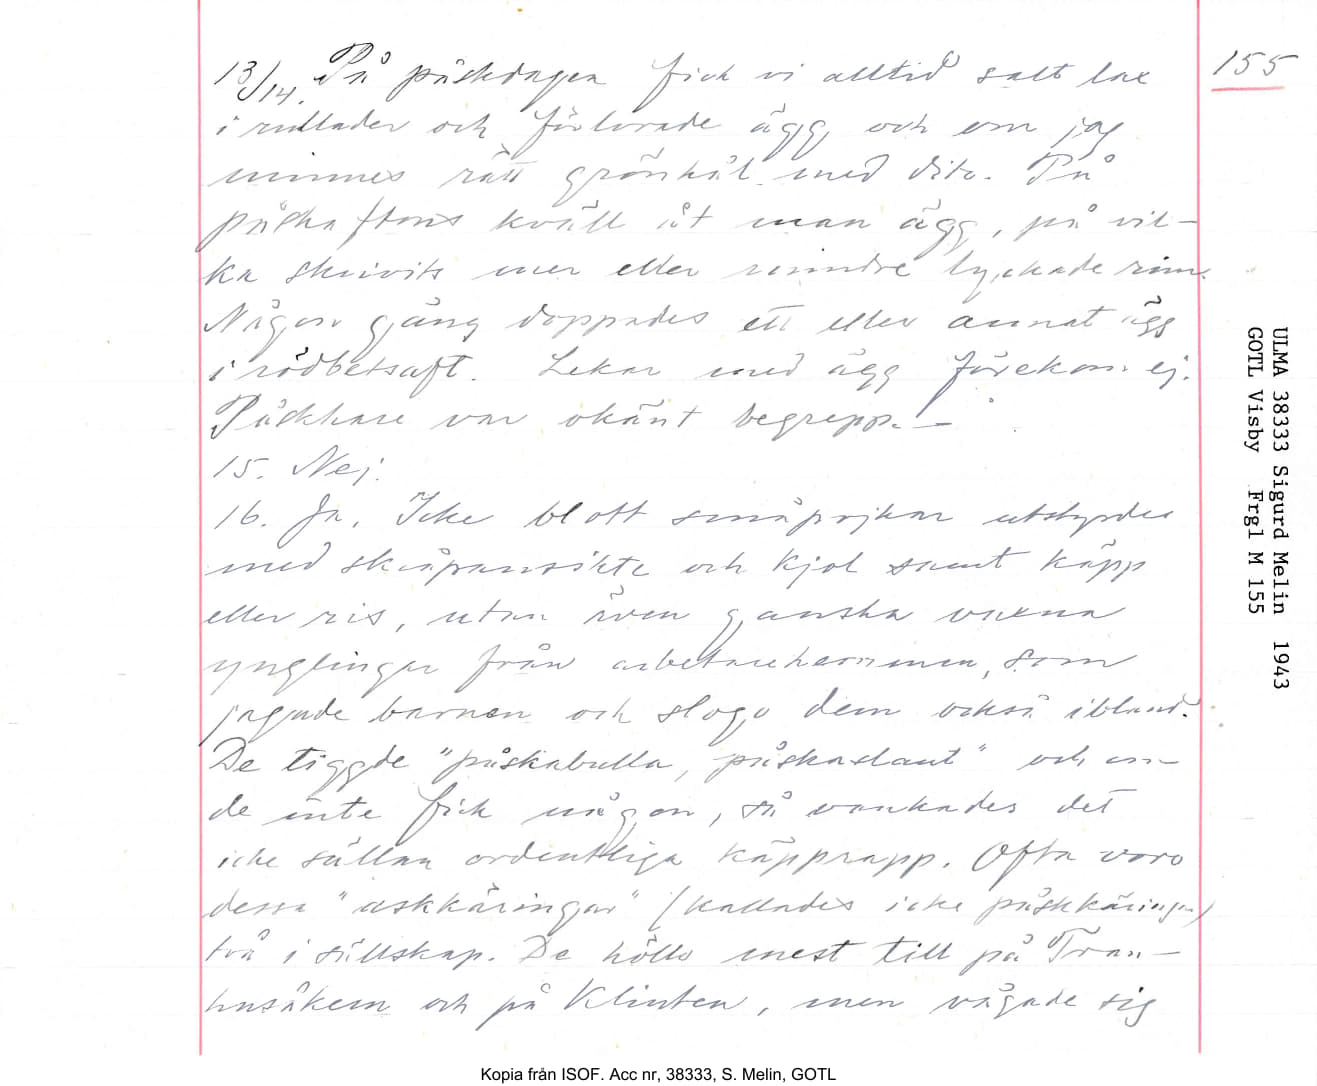 155
13/14. På påskdagen fick vi alltid salt lax
i rullader och förlorade ägg och om jag
minnes rätt grönkål med dito. På
påskaftons kväll åt man ägg, på vil-
ka skrivits mer eller mindre lyckade rim.
Någon gång doppades ett eller annat ägg
i rödbetsaft. Lekar med ägg förekom ej.
Påskhare var okänt begrepp. -
15. Nej.
16. Ja. Icke blott småpojkar utstyrdes
med skråpansikte och kjol samt käpp
eller ris, utan även ganska vuxna
ynglingar från arbetarehemmen, som
jagade barnen och slogo dem också ibland.
De tiggde "påskabulla, påskaslant" och om
de inte fick någon, så vankades det
icke sällan ordentliga käpprapp. Ofta voro
dessa "askkäringar" (kallades icke påskkäringar)
två i sällskap. De höllo mest till på Tran-
husåkern och på Klinten, men vågade sig
ULMA 38333 Sigurd Melin 1943
GOTL Visby Frgl M 155
Kopia från ISOF. Acc nr, 38333, S. Melin, GOTL